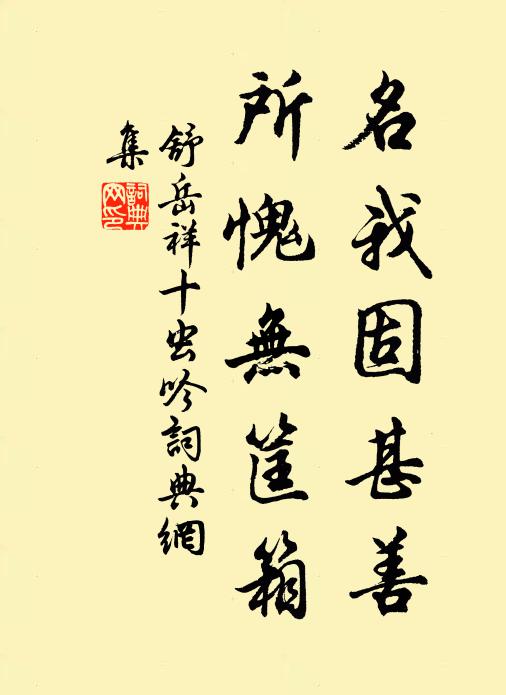 名我固甚善
所愧無筐箱
舒岳祥十虫吟詞典網
集
詞典
网印